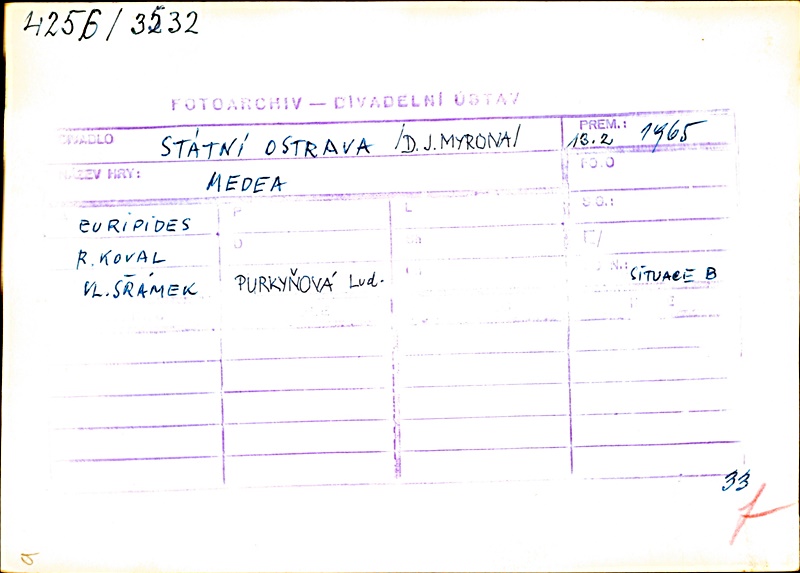 4256/3532
FOTOARCHIV — DIVADELNÍ ÚSTAV
DIVADLO STÁTNÍ OSTRAVA /D.J. MYRONA/ PREM.: 13.2 1965
NÁZEV HRY: MEDEA
EURIPIDES
R. KOVAL
VL. ŠRÁMEK PURKYŇOVÁ Lud. SITUACE B
33